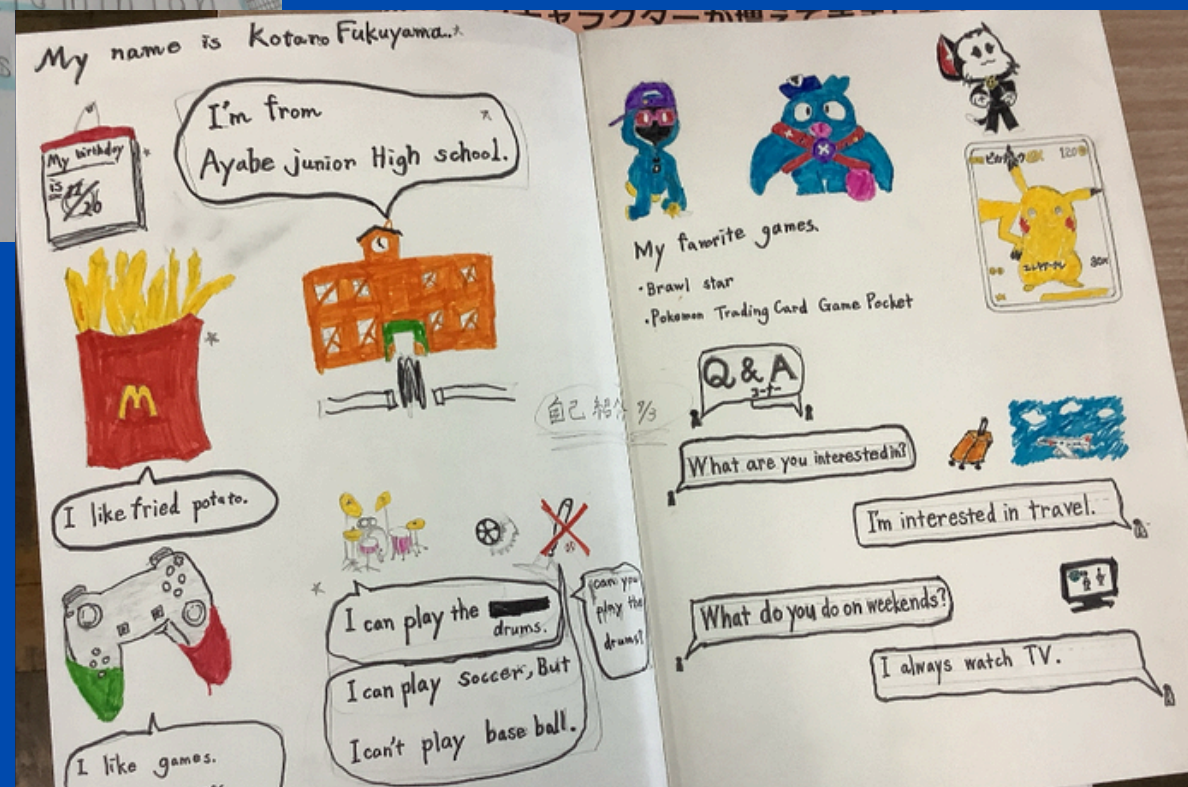 My name is Kotaro Fukuyama.
My birthday
is
I'm from
Ayabe junior High school.
M
I like fried potato.
I can play the
drums.
can you
play the
drums?
I can play soccer, But
I can't play base ball.
I like games.
自己紹介 9/3
ピカチュウ
120
My favorite games.
・Brawl star
・Pokemon Trading Card Game Pocket
Q & A
コーナー
What are you interested in?
I'm interested in travel.
What do you do on weekends?
I always watch TV.